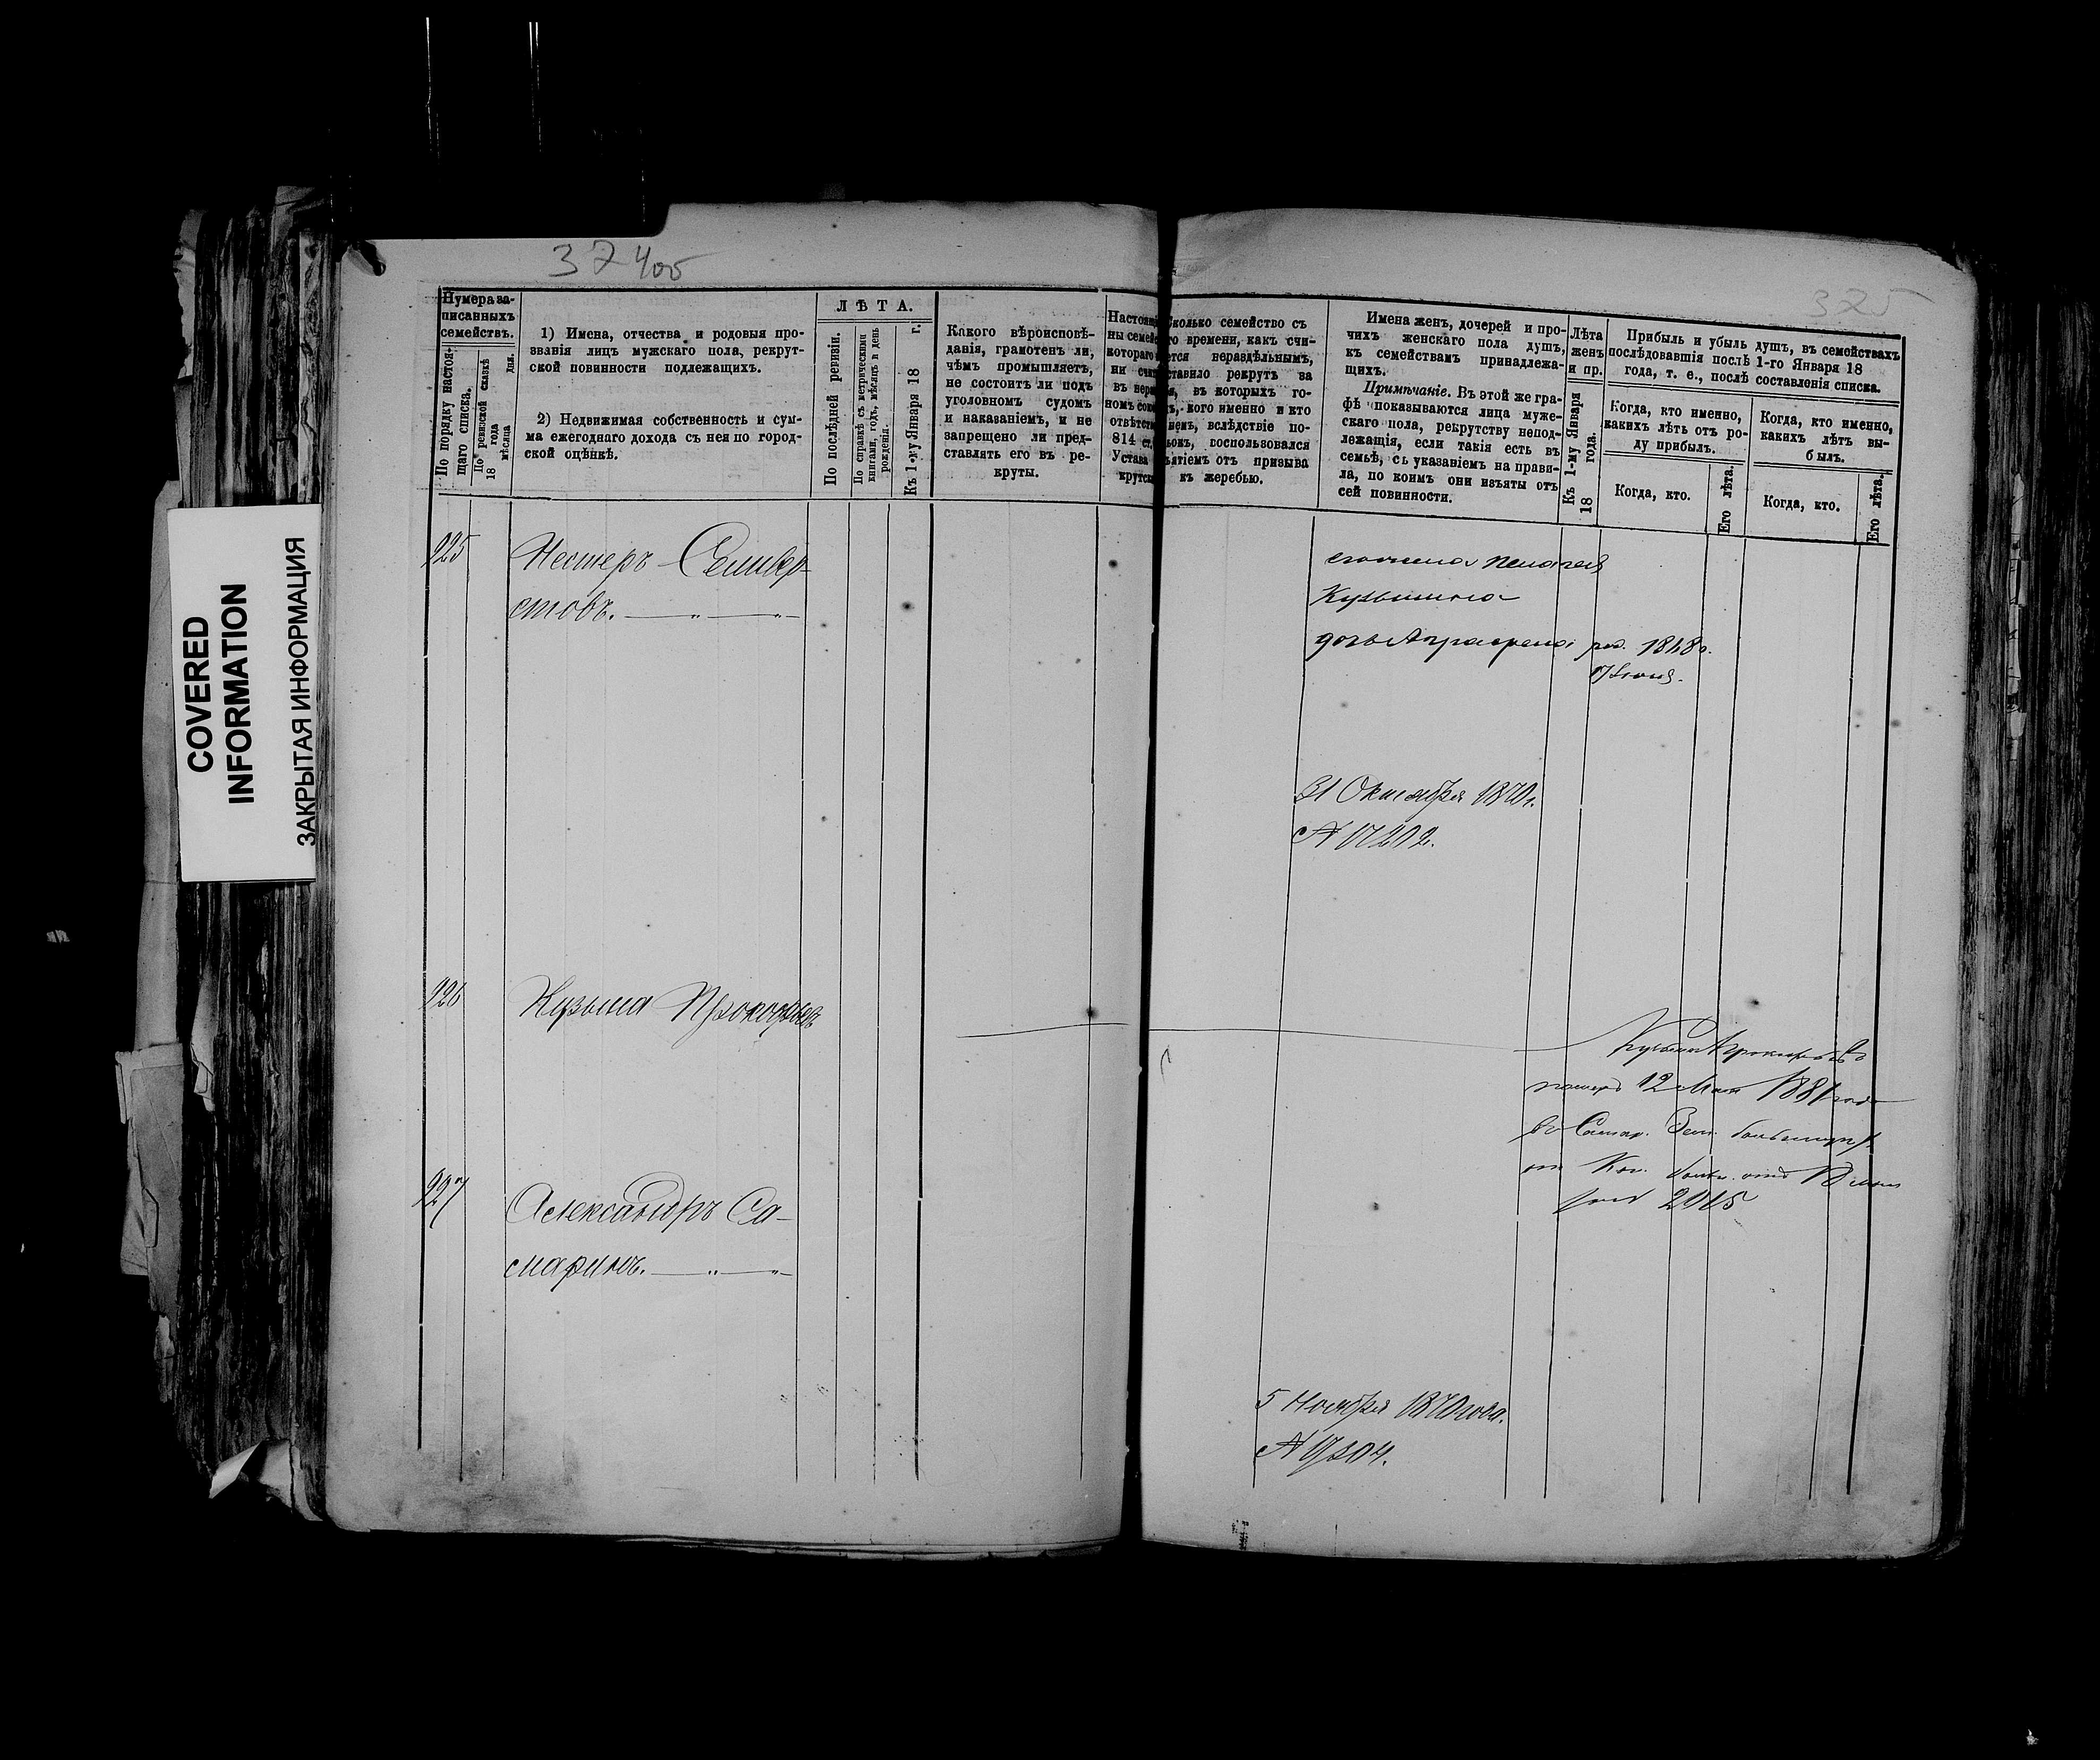 COVERED
INFORMATION
ЗАКРЫТАЯ ИНФОРМАЦИЯ
325
Нумера за-
писанныхъ
семействъ.
По порядку настоя-
щаго списка.
По ревизской сказкѣ
18 года
мѣсяца дня.
1) Имена, отчества и родовыя про-
званія лицъ мужскаго пола, рекрут-
ской повинности подлежащихъ.
2) Недвижимая собственность и сум-
ма ежегоднаго дохода съ нея по город-
ской оцѣнкѣ.
ЛѢТА.
По послѣдней ревизіи.
По справкѣ съ метрическими
книгами, годъ, мѣсяцъ и день
рожденія.
Къ 1-му Января 18 г.
Какого вѣроисповѣ-
данія, грамотенъ ли,
чѣмъ промышляетъ,
не состоитъ ли подъ
уголовномъ судомъ
и наказаніемъ, и не
запрещено ли пред-
ставлять его въ ре-
круты.
Сколько семейство съ
времени, какъ счи-
нераздѣльнымъ,
рекрутъ за
въ которыхъ го-
кого именно и кто
вслѣдствіе по-
воспользовался
отъ призыва
къ жеребью.
Имена женъ, дочерей и про-
чихъ женскаго пола душъ,
къ семействамъ принадлежа-
щихъ.
Примѣчаніе. Въ этой же гра-
фѣ показываются лица муже-
скаго пола, рекрутству непод-
лежащія, если такія есть въ
семьѣ, съ указаніемъ на прави-
ла, по коимъ они изъяты отъ
сей повинности.
Лѣта
женъ
и пр.
Къ 1-му Января
18 года.
Прибыль и убыль душъ, въ семействахъ
послѣдовавшія послѣ 1-го Января 18
года, т. е., послѣ составленія списка.
Когда, кто именно,
какихъ лѣтъ отъ ро-
ду прибылъ.
Когда, кто.
Его лѣта.
Когда, кто именно,
какихъ лѣтъ вы-
былъ.
Когда, кто.
Его лѣта.
925
Нестеръ Селивер-
стовъ.
его жена Пелагея
Кузьмина
дочь Аграфена род. 1848 г.
31 Октября 1870 г.
926
Кузьма Прокофьевъ
Кузьма Прокофьевъ
померъ 12 Мая 1881 года
въ Самар. Зем. больницѣ
927
Александръ Са-
маринъ.
5 Ноября 1870 года.